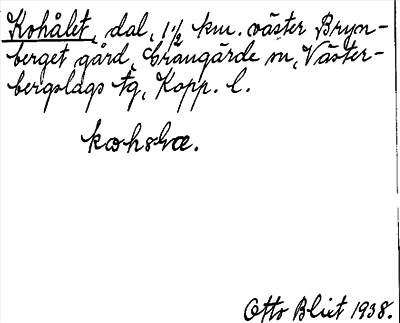 Kohålet, dal, 1½ km. väster Bryn-
berget gård, Grangärde sn, Väster-
bergslags tg, Kopp. l.
Otto Blixt 1938.